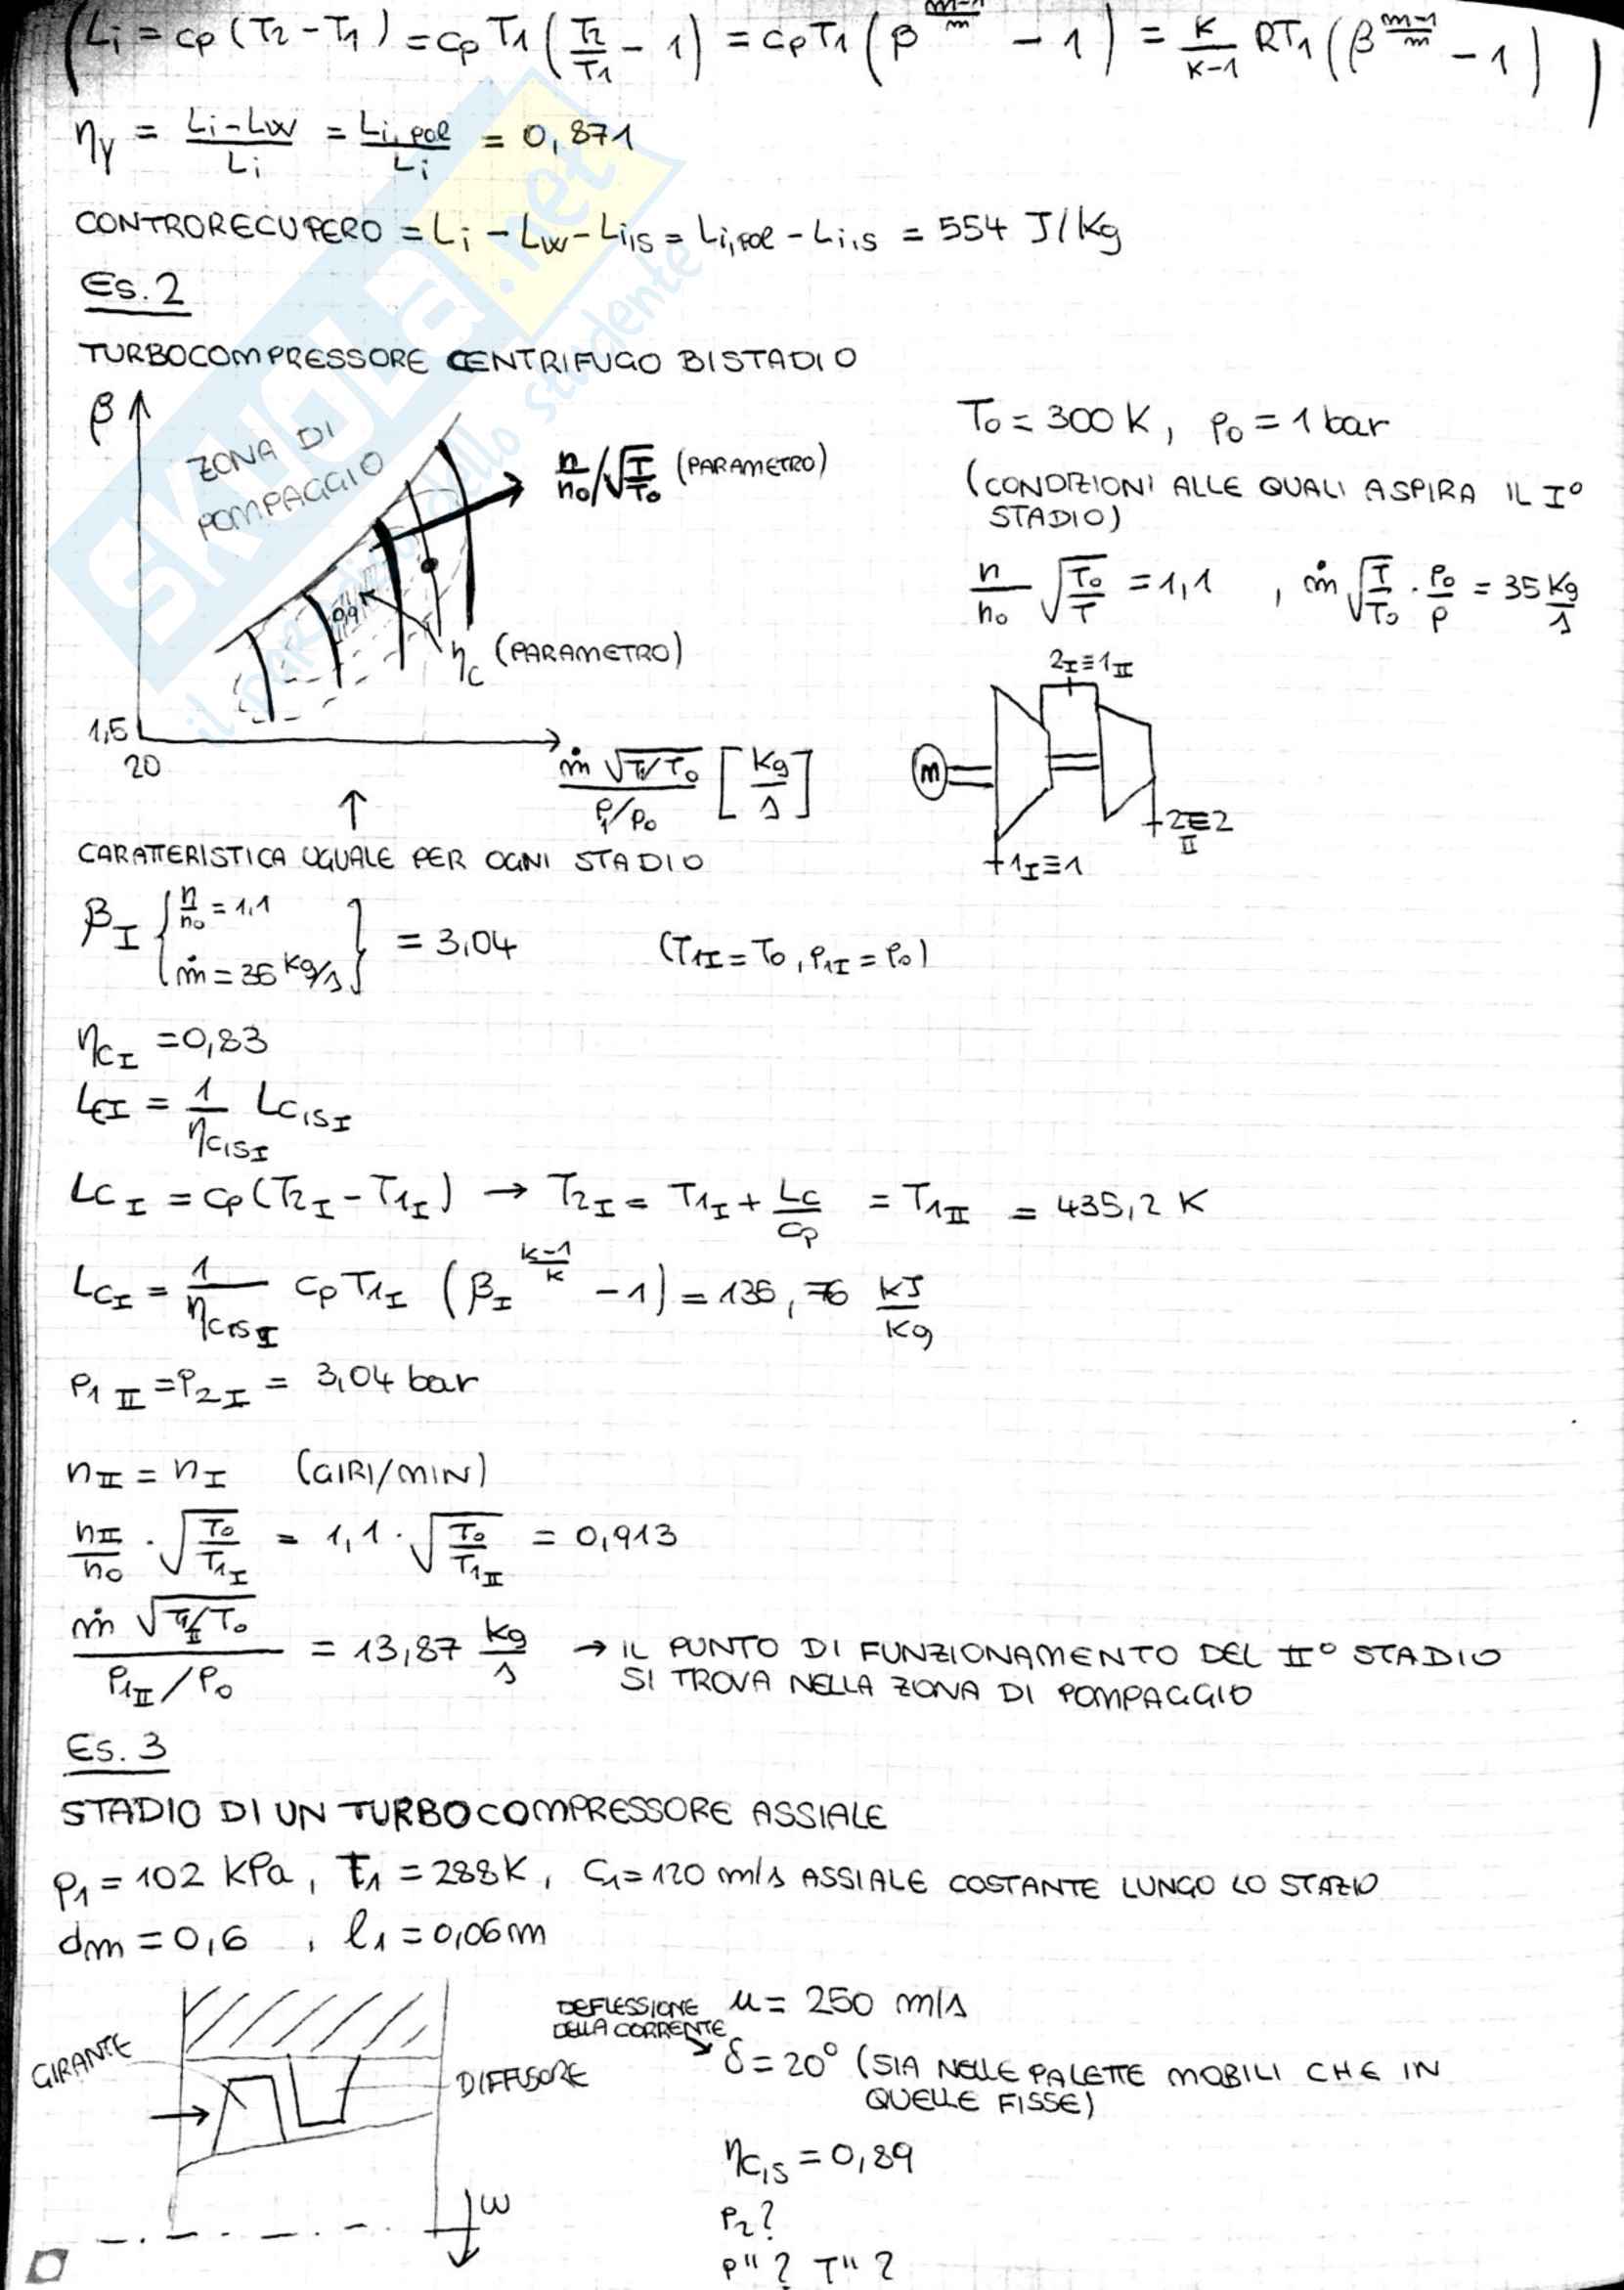 (Li = cp (T2 - T1) = cp T1 (T2/T1 - 1) = cp T1 (β^((m-1)/m) - 1) = K/(K-1) RT1 (β^((m-1)/m) - 1))
ηy = (Li - Lw)/Li = Li,pol/Li = 0,871
CONTRORECUPERO = Li - Lw - Li,is = Li,pol - Li,is = 554 J/Kg
Es. 2
TURBOCOMPRESSORE CENTRIFUGO BISTADIO
β
ZONA DI POMPAGGIO
n/n0/√(T/T0) (PARAMETRO)
0,9
ηc (PARAMETRO)
1,5
20
ṁ √(T1/T0) / (p1/p0) [Kg/s]
T0 = 300 K, p0 = 1 bar
(CONDIZIONI ALLE QUALI ASPIRA IL I°
STADIO)
n/n0 √(T0/T) = 1,1 , ṁ √(T/T0) · p0/p = 35 Kg/s
2I ≡ 1II
m
2II ≡ 2
1I ≡ 1
↑
CARATTERISTICA UGUALE PER OGNI STADIO
βI { n/n0 = 1,1
ṁ = 35 Kg/s } = 3,04 (T1I = T0, p1I = p0)
ηcI = 0,83
LcI = 1/ηcisI LcisI
LcI = cp (T2I - T1I) → T2I = T1I + Lc/cp = T1II = 435,2 K
LcI = 1/ηcisI cp T1I (βI^((k-1)/k) - 1) = 135,76 kJ/Kg
p1II = p2I = 3,04 bar
nII = nI (GIRI/MIN)
nII/n0 · √(T0/T1I) = 1,1 · √(T0/T1II) = 0,913
ṁ √(T1II/T0) / (p1II/p0) = 13,87 Kg/s → IL PUNTO DI FUNZIONAMENTO DEL II° STADIO
SI TROVA NELLA ZONA DI POMPAGGIO
Es. 3
STADIO DI UN TURBOCOMPRESSORE ASSIALE
p1 = 102 kPa, T1 = 288K, C1 = 120 m/s ASSIALE COSTANTE LUNGO LO STAZIO
dm = 0,6 , l1 = 0,06m
GIRANTE
DIFFUSORE
ω
u = 250 m/s
DEFLESSIONE
DELLA CORRENTE
δ = 20° (SIA NELLE PALETTE MOBILI CHE IN
QUELLE FISSE)
ηc,is = 0,89
p2?
p"? T"?
SKUOLA.net
il paradiso dello studente